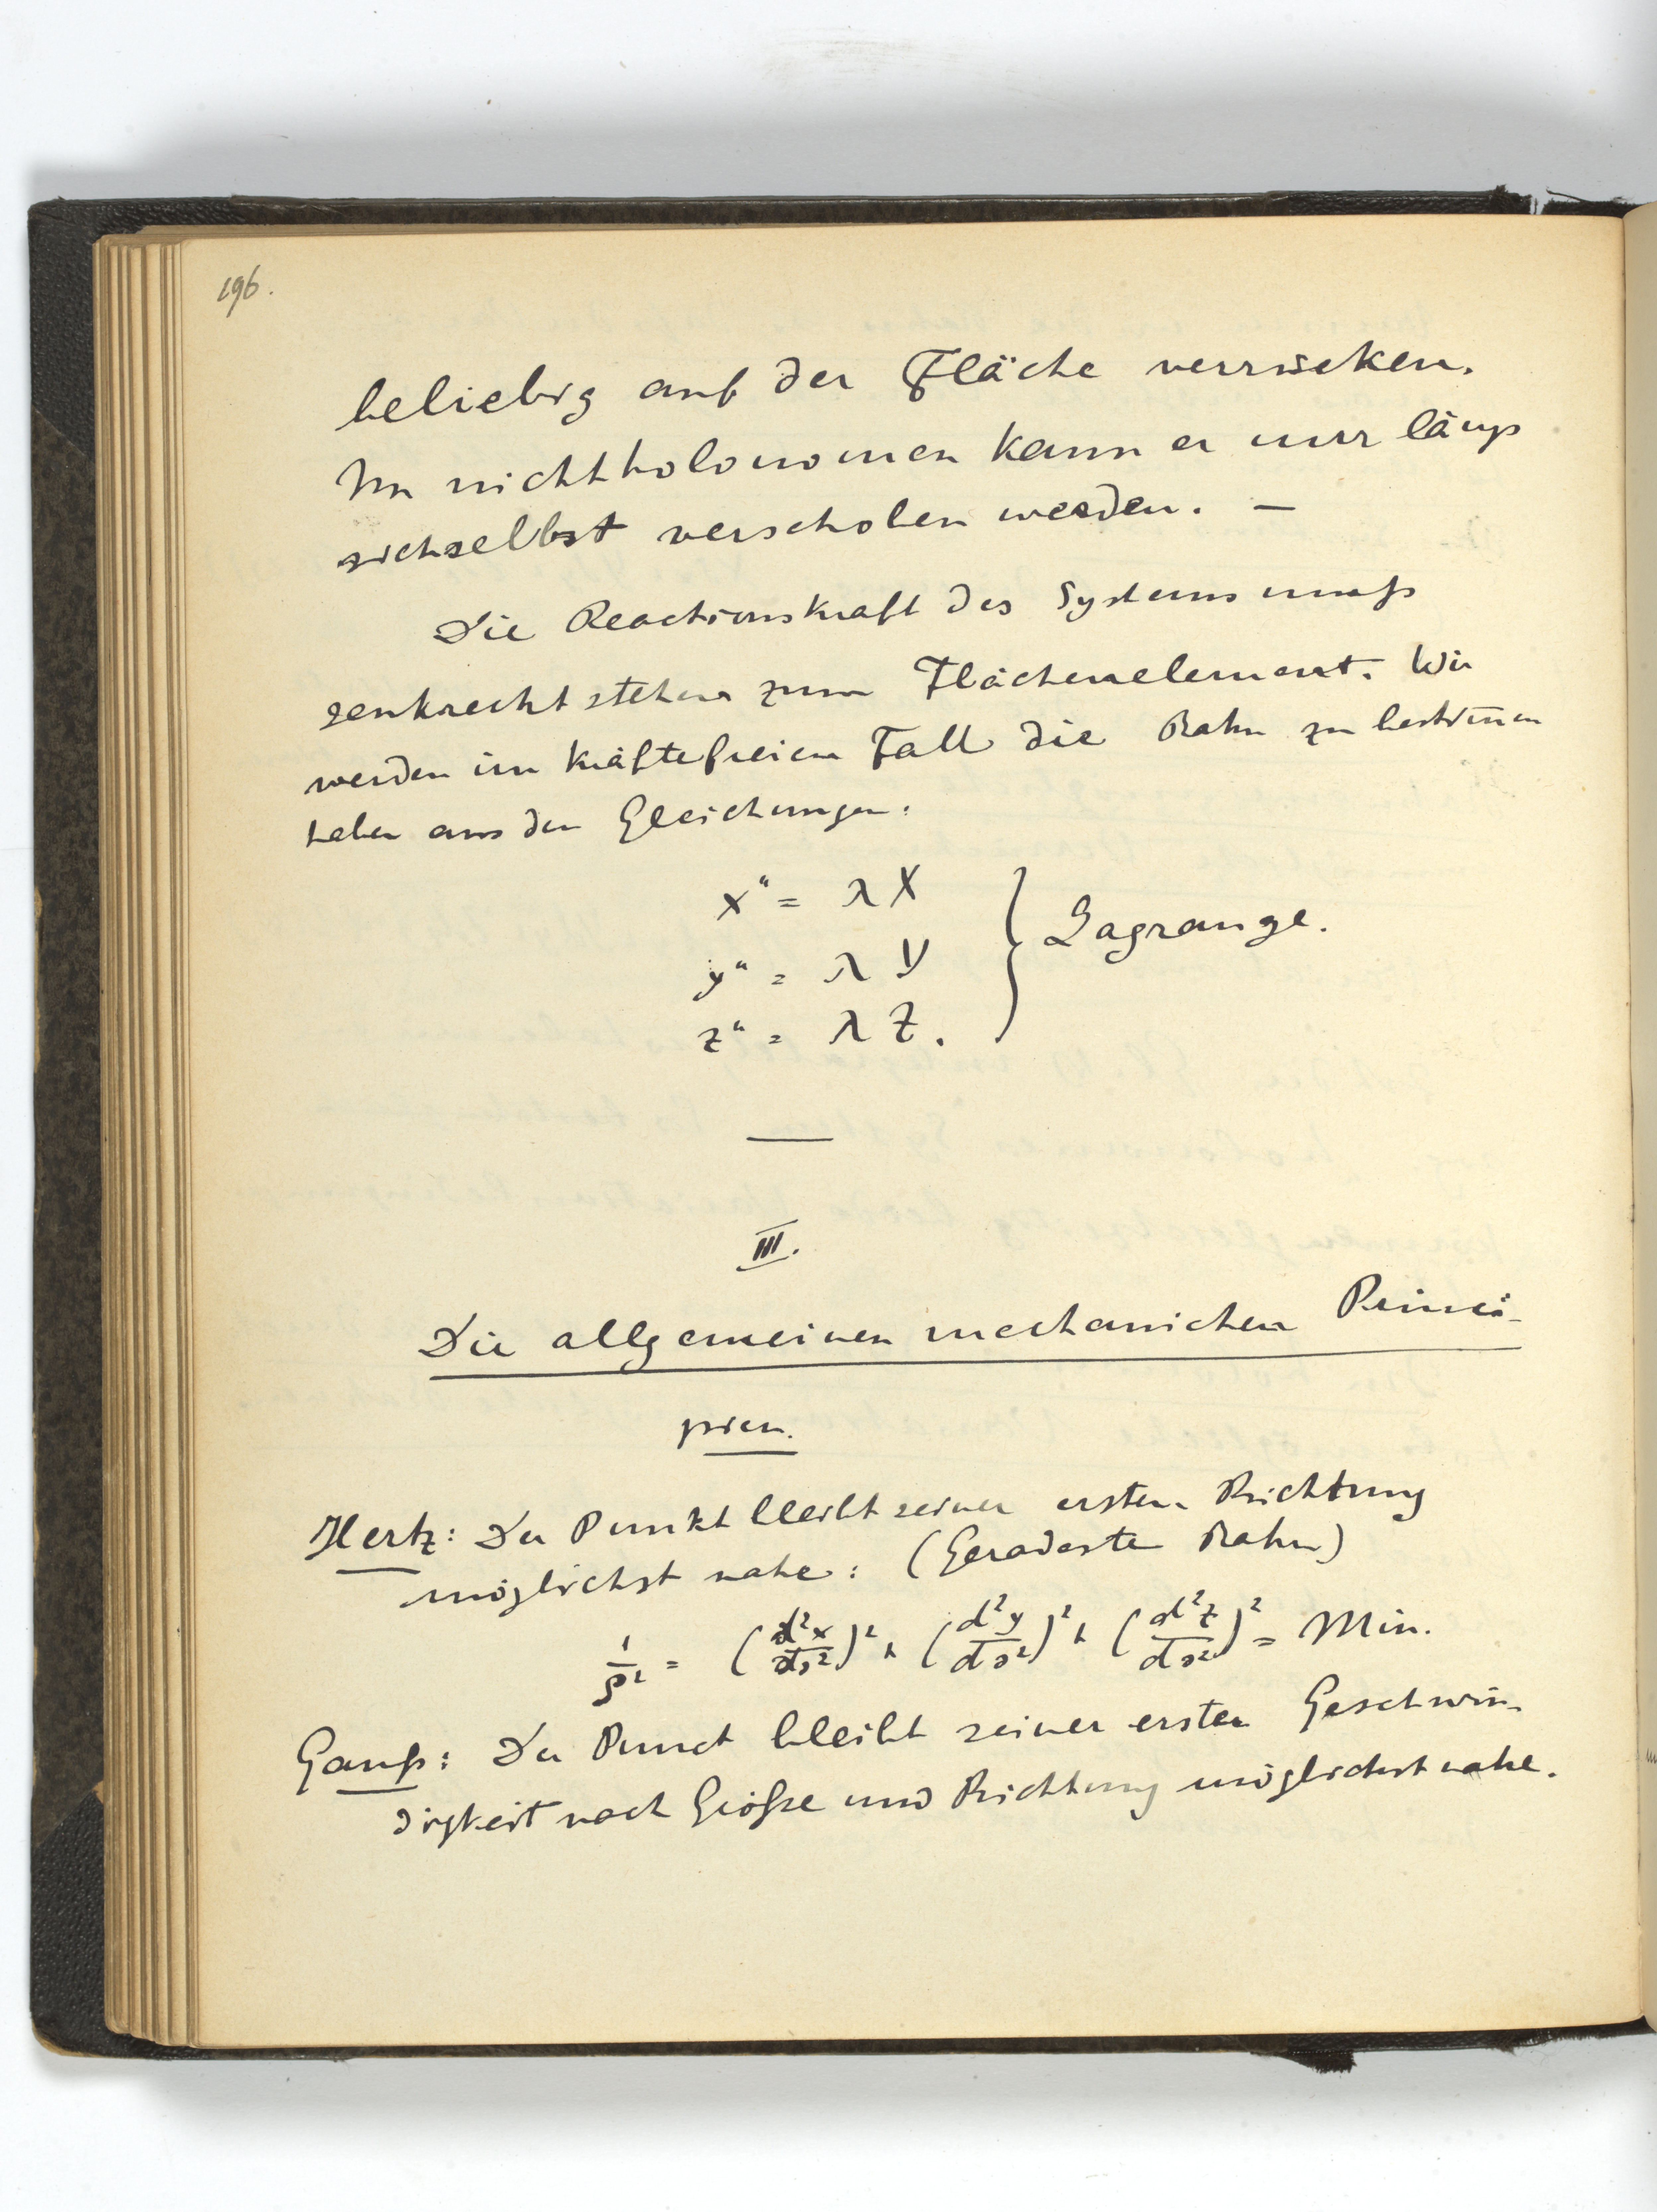 196.
beliebig auf der Fläche verrücken.
Im nichtholonomen kann er nur längs
sichselbst verschoben werden. —
Die Reactionskraft des Systems muß
senkrecht stehen zum Flächenelement. Wir
werden im kräftefreien Fall die Bahn zu bestim̅en
haben aus den Gleichungen:
x" = λX
y" = λY } Lagrange.
z" = λZ.
III.
Die allgemeinen mechanichen Princi-
pien.
Hertz: Der Punkt bleibt seiner ersten Richtung
möglichst nahe: (Geradeste Bahn)
1/ρ² = (d²x/ds²)² + (d²y/ds²)² + (d²z/ds²)² = Min.
Gauß: Der Punct bleibt seiner ersten Geschwin-
digkeit nach Größe und Richtung möglichst nahe.